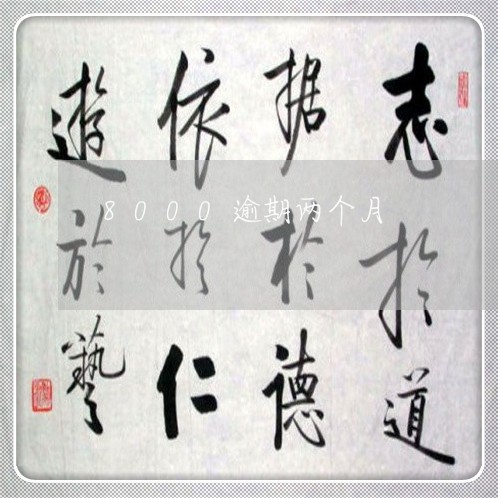 志於道
据於德
依於仁
遊於藝
8000逾期两个月